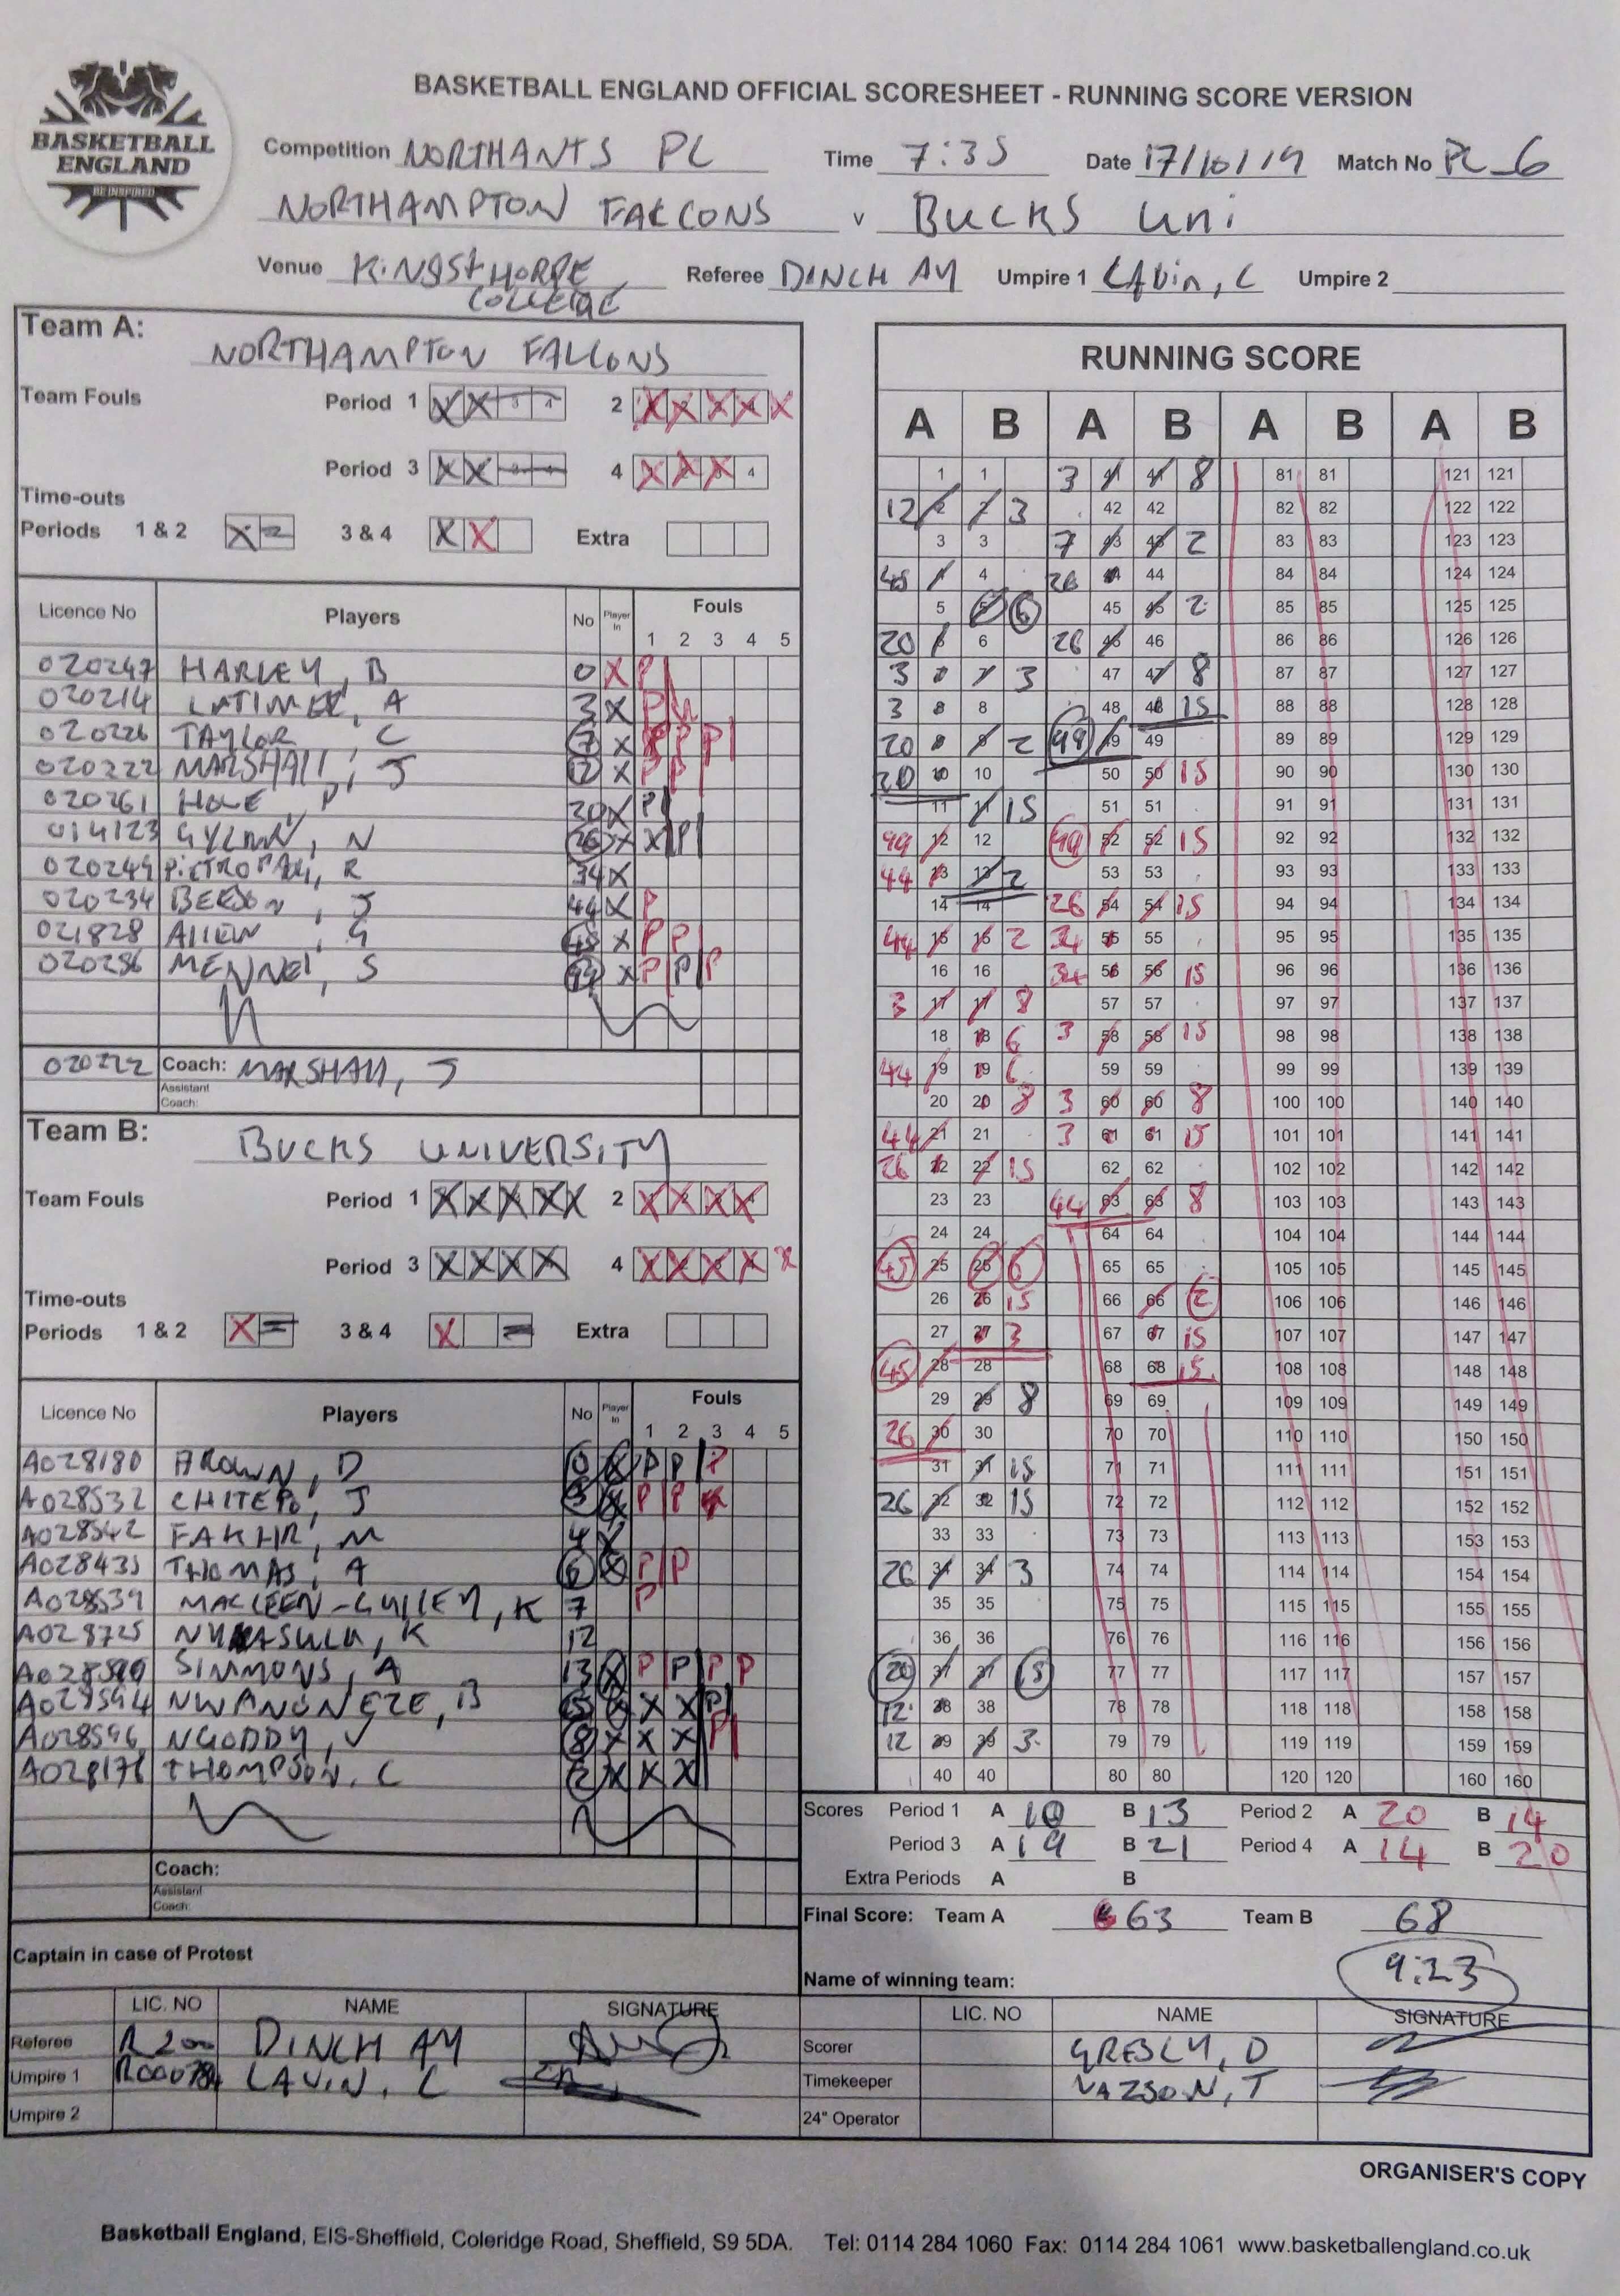 BASKETBALL ENGLAND OFFICIAL SCORESHEET - RUNNING SCORE VERSION
BASKETBALL
ENGLAND
BE INSPIRED
Competition NORTHANTS PL Time 7:35 Date 17/10/19 Match No PL_6
NORTHAMPTON FALCONS v BUCKS Uni
Venue KINGSTHORPE COLLEGE Referee DINCH AY Umpire 1 LAVIN, C Umpire 2
Team A: NORTHAMPTON FALCONS
Team Fouls Period 1 2
Period 3 4
Time-outs
Periods 1 & 2 3 & 4 Extra
Licence No Players No Player In Fouls
1 2 3 4 5
020247 HARLEY, B 0 X P
020214 LATIMER, A 3 X P
020226 TAYLOR, C 7 X P P P
020222 MARSHALL, J 12 X P P
020261 P 20 X P
014123 N 26 X X P
020249 R 34 X
020234 J 44 X P
021828 ALLEN, G 45 X P P
020286 S 99 X P P P
020222 Coach: MARSHALL, J
Assistant Coach:
Team B: BUCKS UNIVERSITY
Team Fouls Period 1 2
Period 3 4
Time-outs
Periods 1 & 2 3 & 4 Extra
Licence No Players No Player In Fouls
1 2 3 4 5
A028180 D 0 X P P P
A028532 CHITEPO, J 3 X P P
A028542 FAKHR, M 4 X
A028435 THOMAS, A 6 X P P
A028539 K 7 P
A028725 K 12
SIMMONS, A 13 X P P P P
A028594 B 15 X X X P
A028596 NGODDY, V 8 X X X P
A028176 THOMPSON, C 2 X X X
Coach:
Assistant Coach:
Captain in case of Protest
LIC. NO NAME SIGNATURE
Referee R200 DINCH AY
Umpire 1 LAVIN, C
Umpire 2
RUNNING SCORE
A B A B A B A B
1 1 3 41 41 8 81 81 121 121
12 2 2 3 42 42 82 82 122 122
3 3 7 43 43 2 83 83 123 123
45 4 4 26 44 44 84 84 124 124
5 5 6 45 45 2 85 85 125 125
20 6 6 26 46 46 86 86 126 126
3 7 7 3 47 47 8 87 87 127 127
3 8 8 48 48 15 88 88 128 128
20 9 9 2 99 49 49 89 89 129 129
20 10 10 50 50 15 90 90 130 130
11 11 15 51 51 91 91 131 131
99 12 12 99 52 52 15 92 92 132 132
44 13 13 2 53 53 93 93 133 133
14 14 26 54 54 15 94 94 134 134
44 15 15 2 34 55 55 95 95 135 135
16 16 34 56 56 15 96 96 136 136
3 17 17 8 57 57 97 97 137 137
18 18 6 3 58 58 15 98 98 138 138
44 19 19 6 59 59 99 99 139 139
20 20 8 3 60 60 8 100 100 140 140
44 21 21 3 61 61 15 101 101 141 141
26 22 22 15 62 62 102 102 142 142
23 23 44 63 63 8 103 103 143 143
24 24 64 64 104 104 144 144
45 25 25 6 65 65 105 105 145 145
26 26 15 66 66 2 106 106 146 146
27 27 3 67 67 15 107 107 147 147
45 28 28 68 68 15 108 108 148 148
29 29 8 69 69 109 109 149 149
26 30 30 70 70 110 110 150 150
31 31 15 71 71 111 111 151 151
26 32 32 15 72 72 112 112 152 152
33 33 73 73 113 113 153 153
26 34 34 3 74 74 114 114 154 154
35 35 75 75 115 115 155 155
36 36 76 76 116 116 156 156
20 37 37 77 77 117 117 157 157
12 38 38 78 78 118 118 158 158
12 39 39 3 79 79 119 119 159 159
40 40 80 80 120 120 160 160
Scores Period 1 A 10 B 13 Period 2 A 20 B 14
Period 3 A 19 B 21 Period 4 A 14 B 20
Extra Periods A B
Final Score: Team A 63 Team B 68
9:23
Name of winning team:
LIC. NO NAME SIGNATURE
Scorer GRESLY, D
Timekeeper
24" Operator
ORGANISER'S COPY
Basketball England, EIS-Sheffield, Coleridge Road, Sheffield, S9 5DA. Tel: 0114 284 1060 Fax: 0114 284 1061 www.basketballengland.co.uk